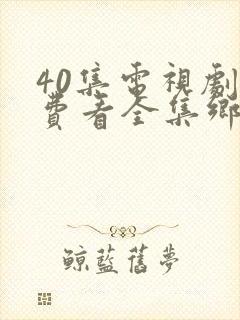 40集電視劇
費看全集鄉
鯨藍舊夢